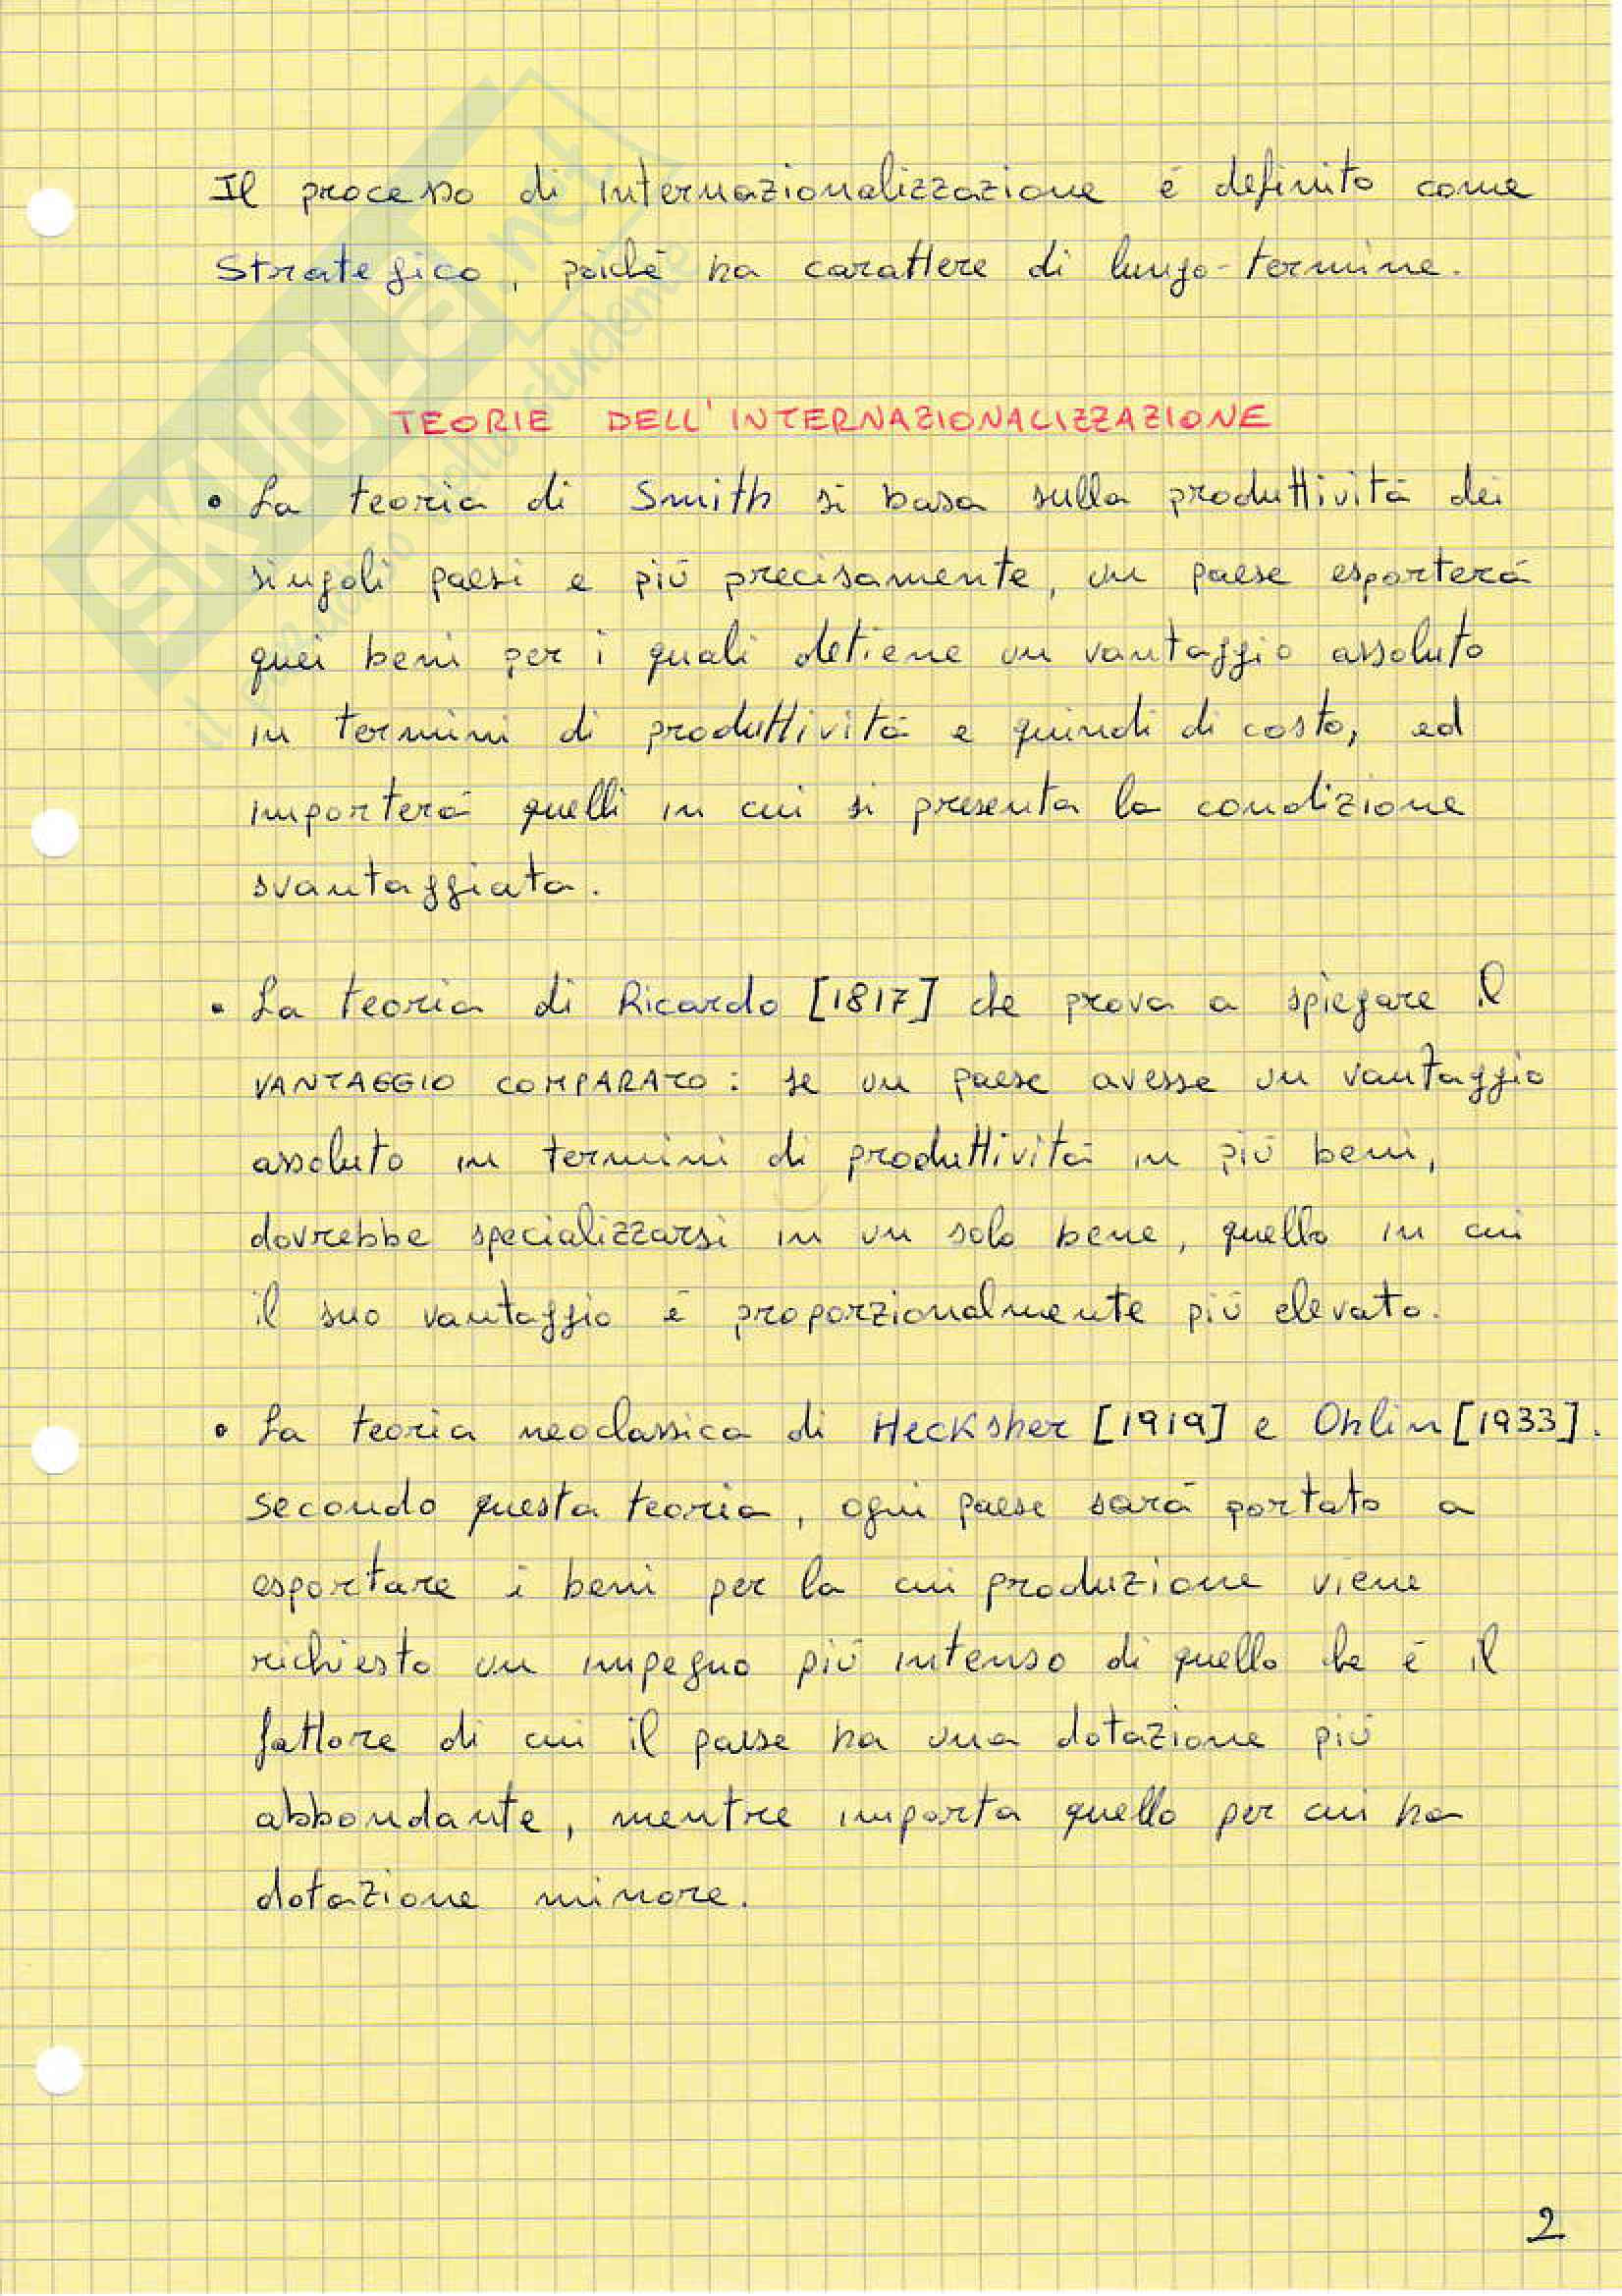 Il processo di internazionalizzazione è definito come
strategico, poiché ha carattere di lungo-termine.
TEORIE DELL'INTERNAZIONALIZZAZIONE
• La teoria di Smith si basa sulla produttività dei
singoli paesi e più precisamente, un paese esporterà
quei beni per i quali detiene un vantaggio assoluto
in termini di produttività e quindi di costo, ed
importerà quelli in cui si presenta la condizione
svantaggiata.
• La teoria di Ricardo [1817] che prova a spiegare il
VANTAGGIO COMPARATO: se un paese avesse un vantaggio
assoluto in termini di produttività in più beni,
dovrebbe specializzarsi in un solo bene, quello in cui
il suo vantaggio è proporzionalmente più elevato.
• La teoria neoclassica di Hecksher [1919] e Ohlin [1933].
secondo questa teoria, ogni paese sarà portato a
esportare i beni per la cui produzione viene
richiesto un impegno più intenso di quello che è il
fattore di cui il paese ha una dotazione più
abbondante, mentre importa quello per cui ha
dotazione minore.
2
SKUOLA.net